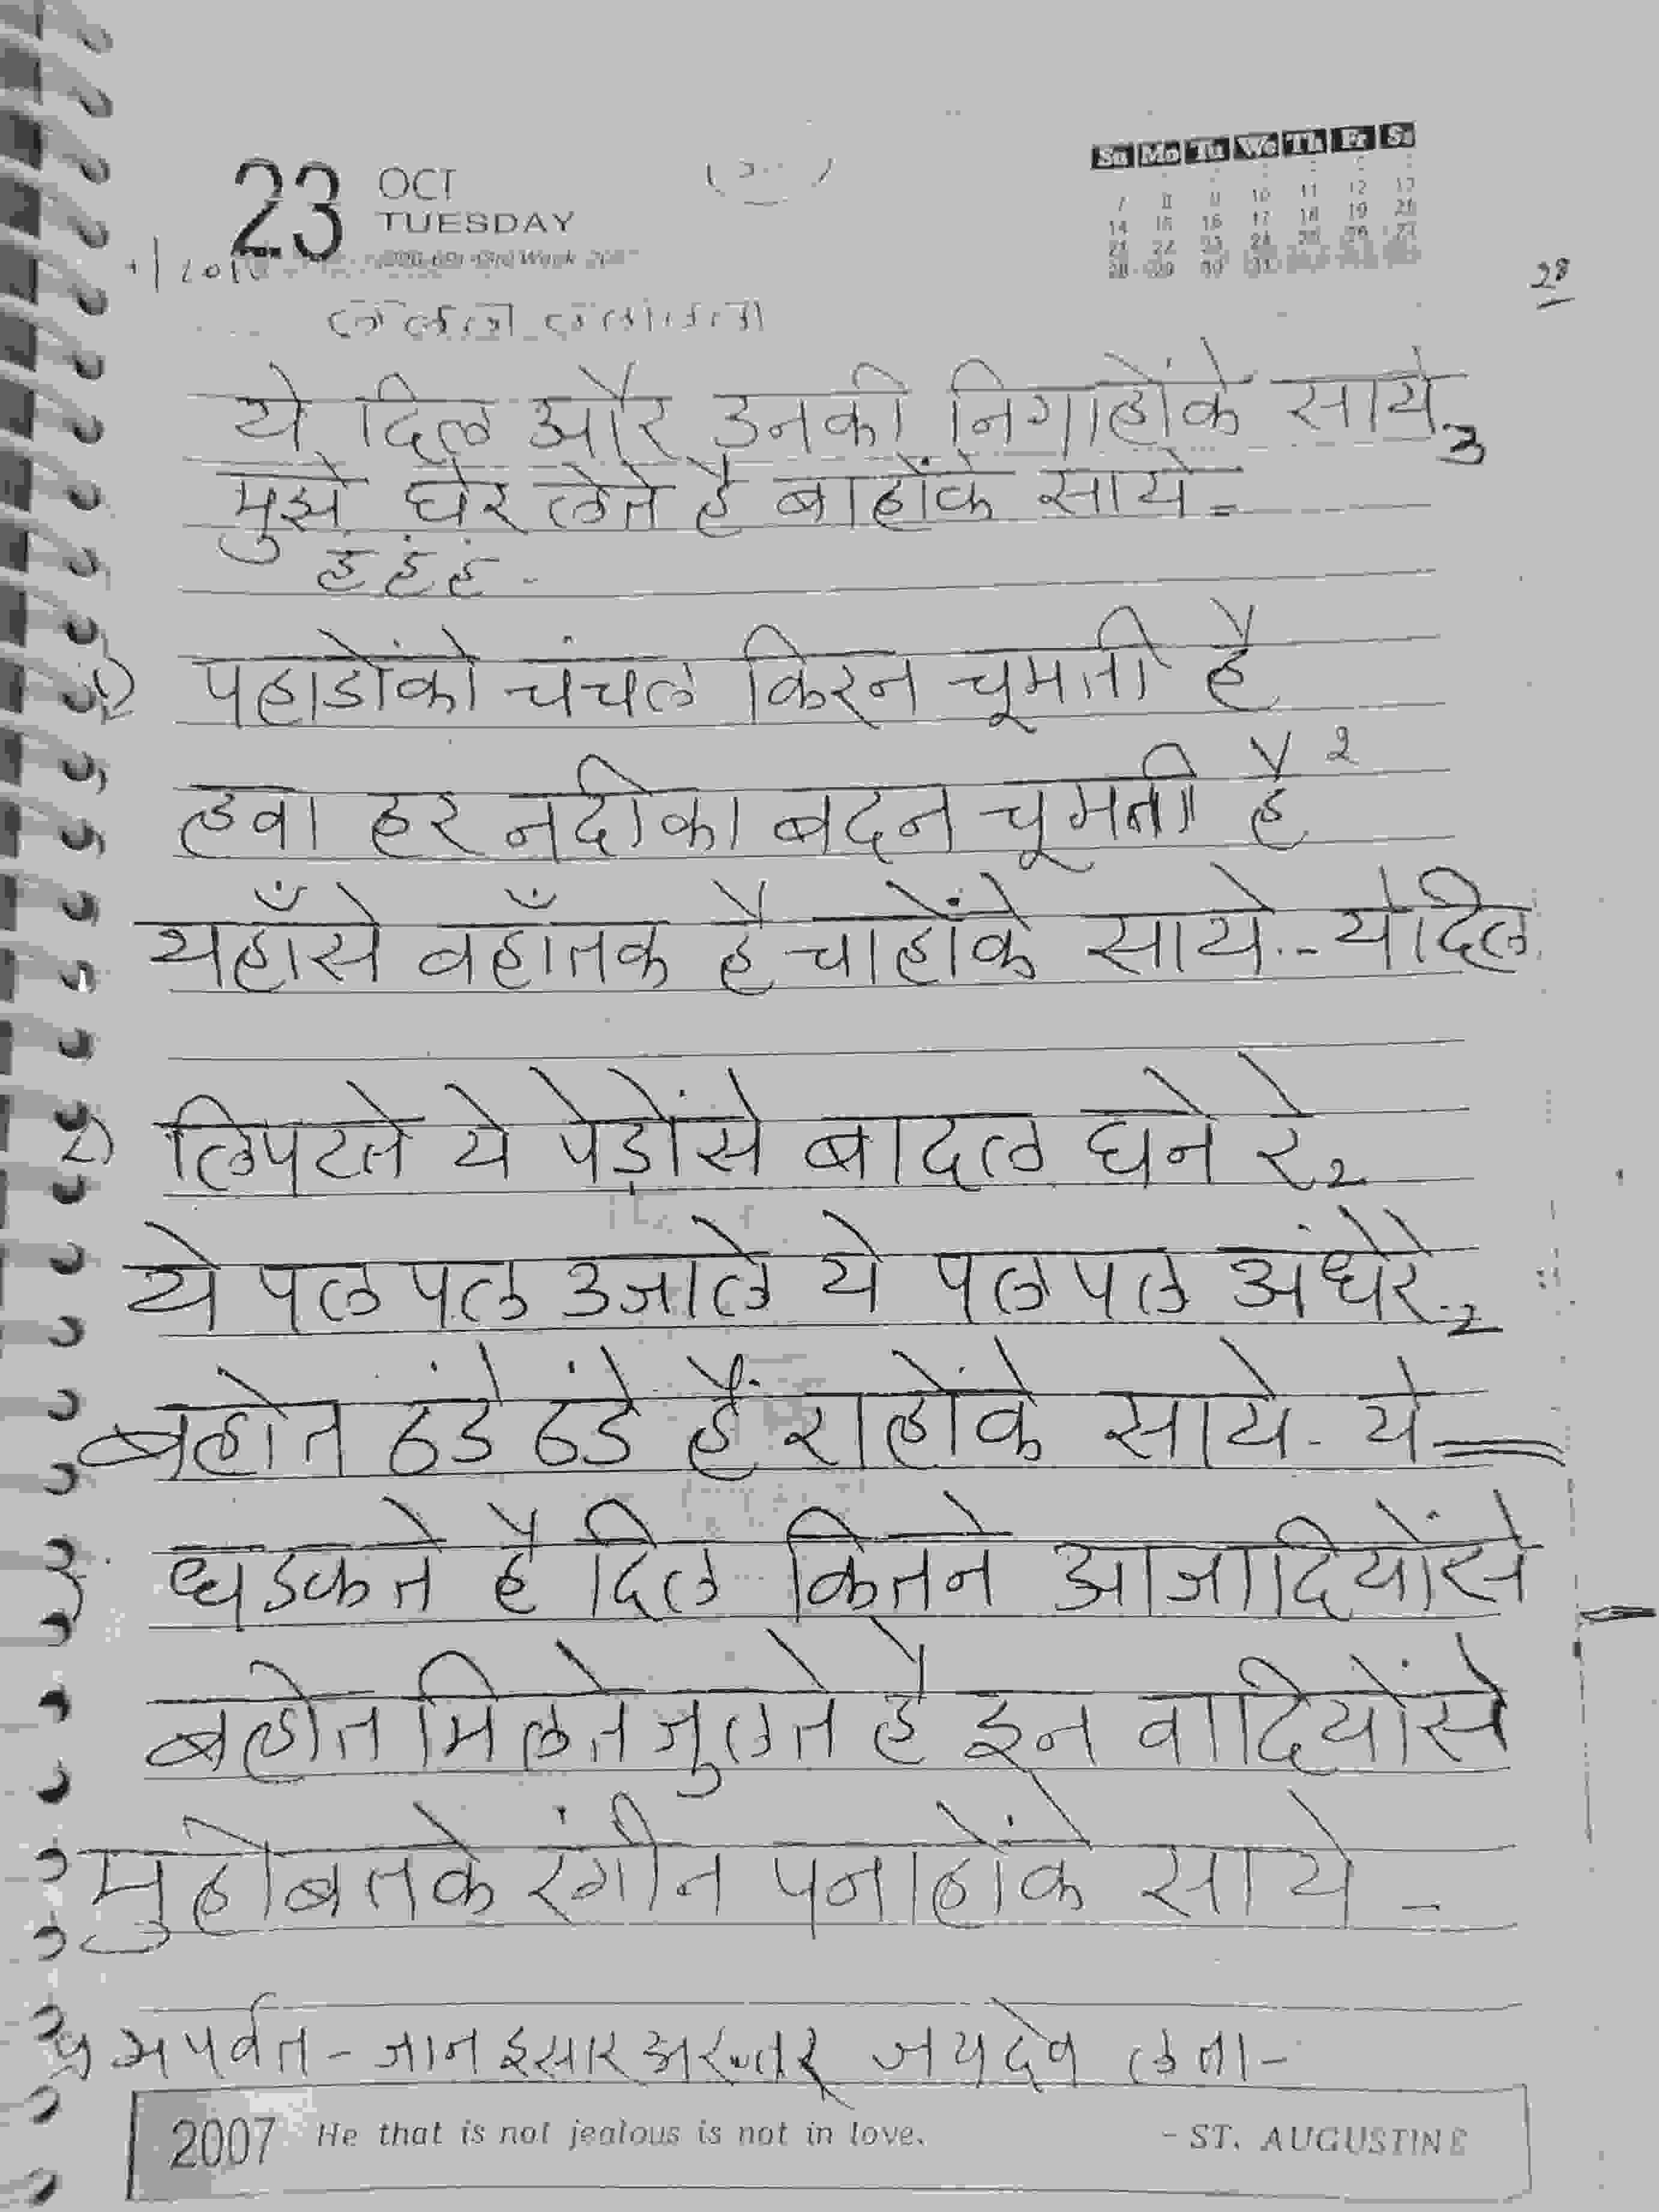 23 OCT
TUESDAY
Su Mo Tu We Th Fr Sa
7 8 9 10 11 12 13
14 15 16 17 18 19 20
21 22 23 24 25 26 27
28 29 30 31
28
ये दिल और उनकी निगाहोंके साये 3
मुझे घेर लेते है बाहोंके साये -
हं हं हं -
१) पहाडोंको चंचल किरन चूमती है
हवा हर नदीका बदन चूमती है २
यहाँसे वहाँतक है चाहोंके साये -- ये दिल
२) लिपटते ये पेड़ोंसे बादल घने रे 2
ये पल पल उजाले ये पल पल अंधेरे 2
बहोत ठंडे ठंडे हैं राहोंके साये - ये
३ धडकते है दिल कितने आजादियोंसे
बहोत मिलते जुलते है इन वादियोंसे
मुहोबतके रंगीन पनाहोंके साये -
प्रेमपर्वत - जानइसार अख्तर जयदेव लता -
2007 He that is not jealous is not in love. - ST. AUGUSTINE